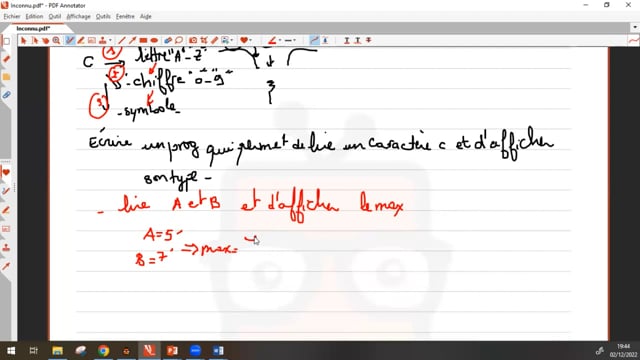 Inconnu.pdf* - PDF Annotator
Edition Outil Affichage Outils Aide
Inconnu.pdf*
1 lettre "A-Z"
C → 2 - chiffre "0-9"
3 - symbole -
Ecrire un prog qui permet de lire un Caractère c et d'afficher
son type -
- lire A et B et d'afficher le max
A = 5
B = 7 → max =
19:44
02/12/2022